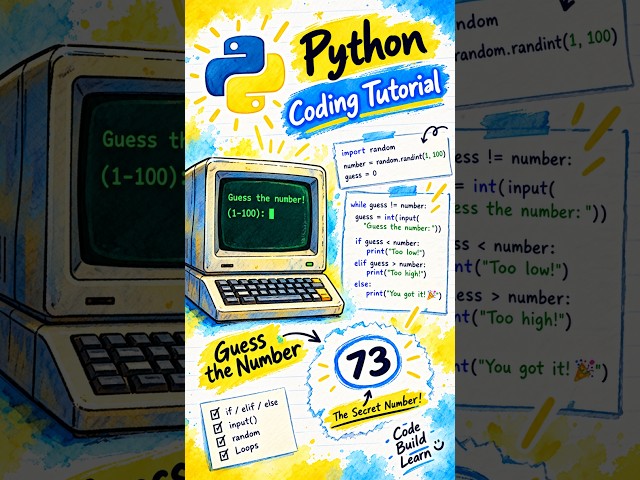 Python
Coding Tutorial
import random
number = random.randint(1, 100)
guess = 0
Guess the number!
(1-100):
while guess != number:
guess = int(input(
"Guess the number: "))
if guess < number:
print("Too low!")
elif guess > number:
print("Too high!")
else:
print("You got it! 🎉")
Guess
the Number
73
The Secret Number!
if / elif / else
input()
random
Loops
Code
Build
Learn
Guess th
(1-100):
ndom
random.randint(1, 100)
ess != number:
= int(input(
ess the number: "))
s < number:
nt("Too low!")
ess > number:
nt("Too high!")
nt("You got it! 🎉")